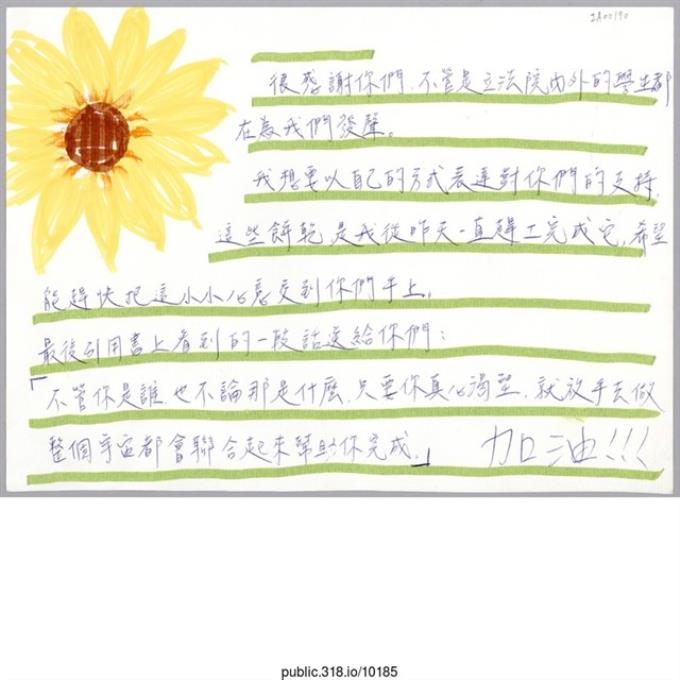 IA00190
很感謝你們,不管是立法院內外的學生都
在為我們發聲。
我想要以自己的方式表達對你們的支持,
這些餅乾是我從昨天一直趕工完成它,希望
能趕快把這小小心意交到你們手上。
最後引用書上看到的一段話送給你們:
「不管你是誰也不論那是什麼,只要你真心渴望,就放手去做
整個宇宙都會聯合起來幫助你完成。」 加油!!!
public.318.io/10185